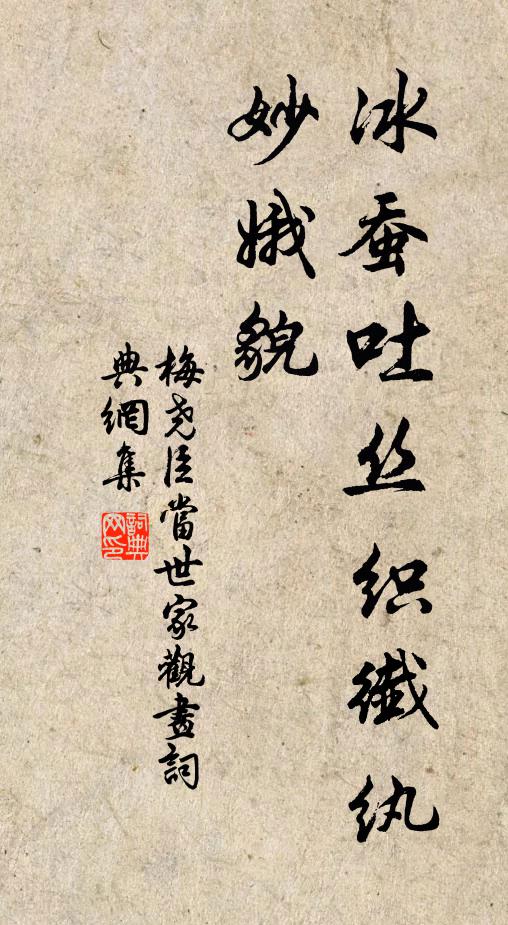 冰蚕吐丝织纎纨
妙娥貌
梅尧臣當世家觀畫詞
典網集
詞典网印